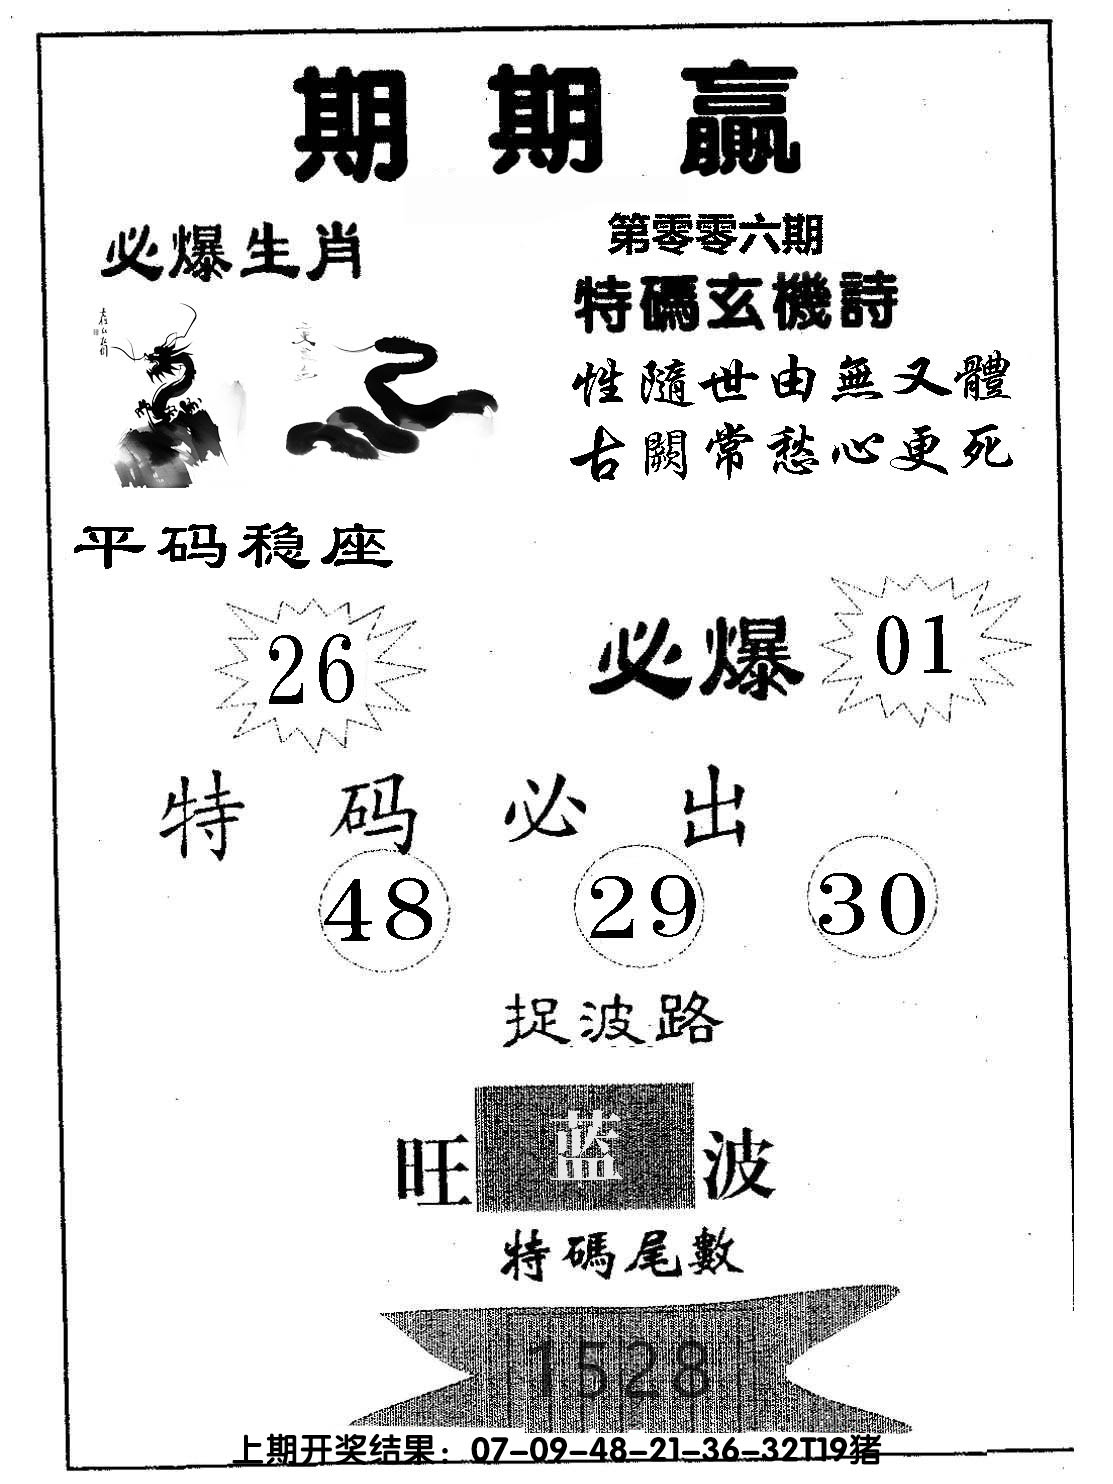 期期贏
第零零六期
必爆生肖
特碼玄機詩
性隨世由無又體
古闕常愁心更死
平码稳座
26
必爆 01
特码必出
48 29 30
捉波路
旺 蓝 波
特碼尾數
1528
上期开奖结果：07-09-48-21-36-32T19猪